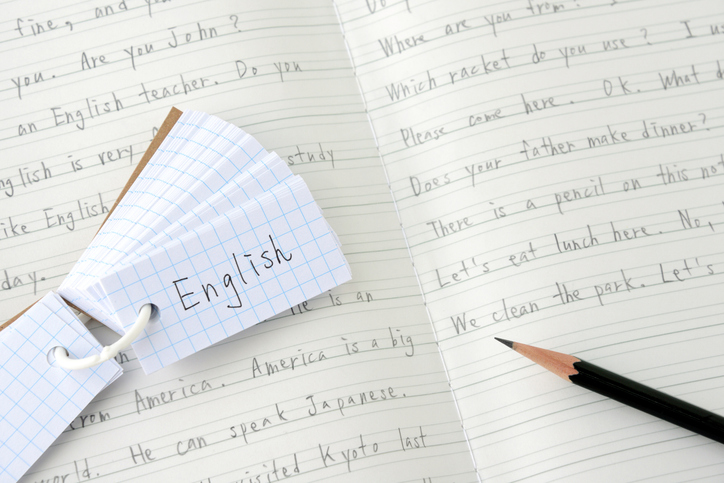 fine, and
you. Are you John ?
an English teacher. Do you
English is very
study
like English
day.
English
He is an
from America. America is a big
world. He can speak Japanese.
visited Kyoto last
Where are you from?
Which racket do you use ? I
Please come here. OK. What
Does your father make dinner?
There is a pencil on this
Let's eat lunch here. No,
We clean the park. Let's